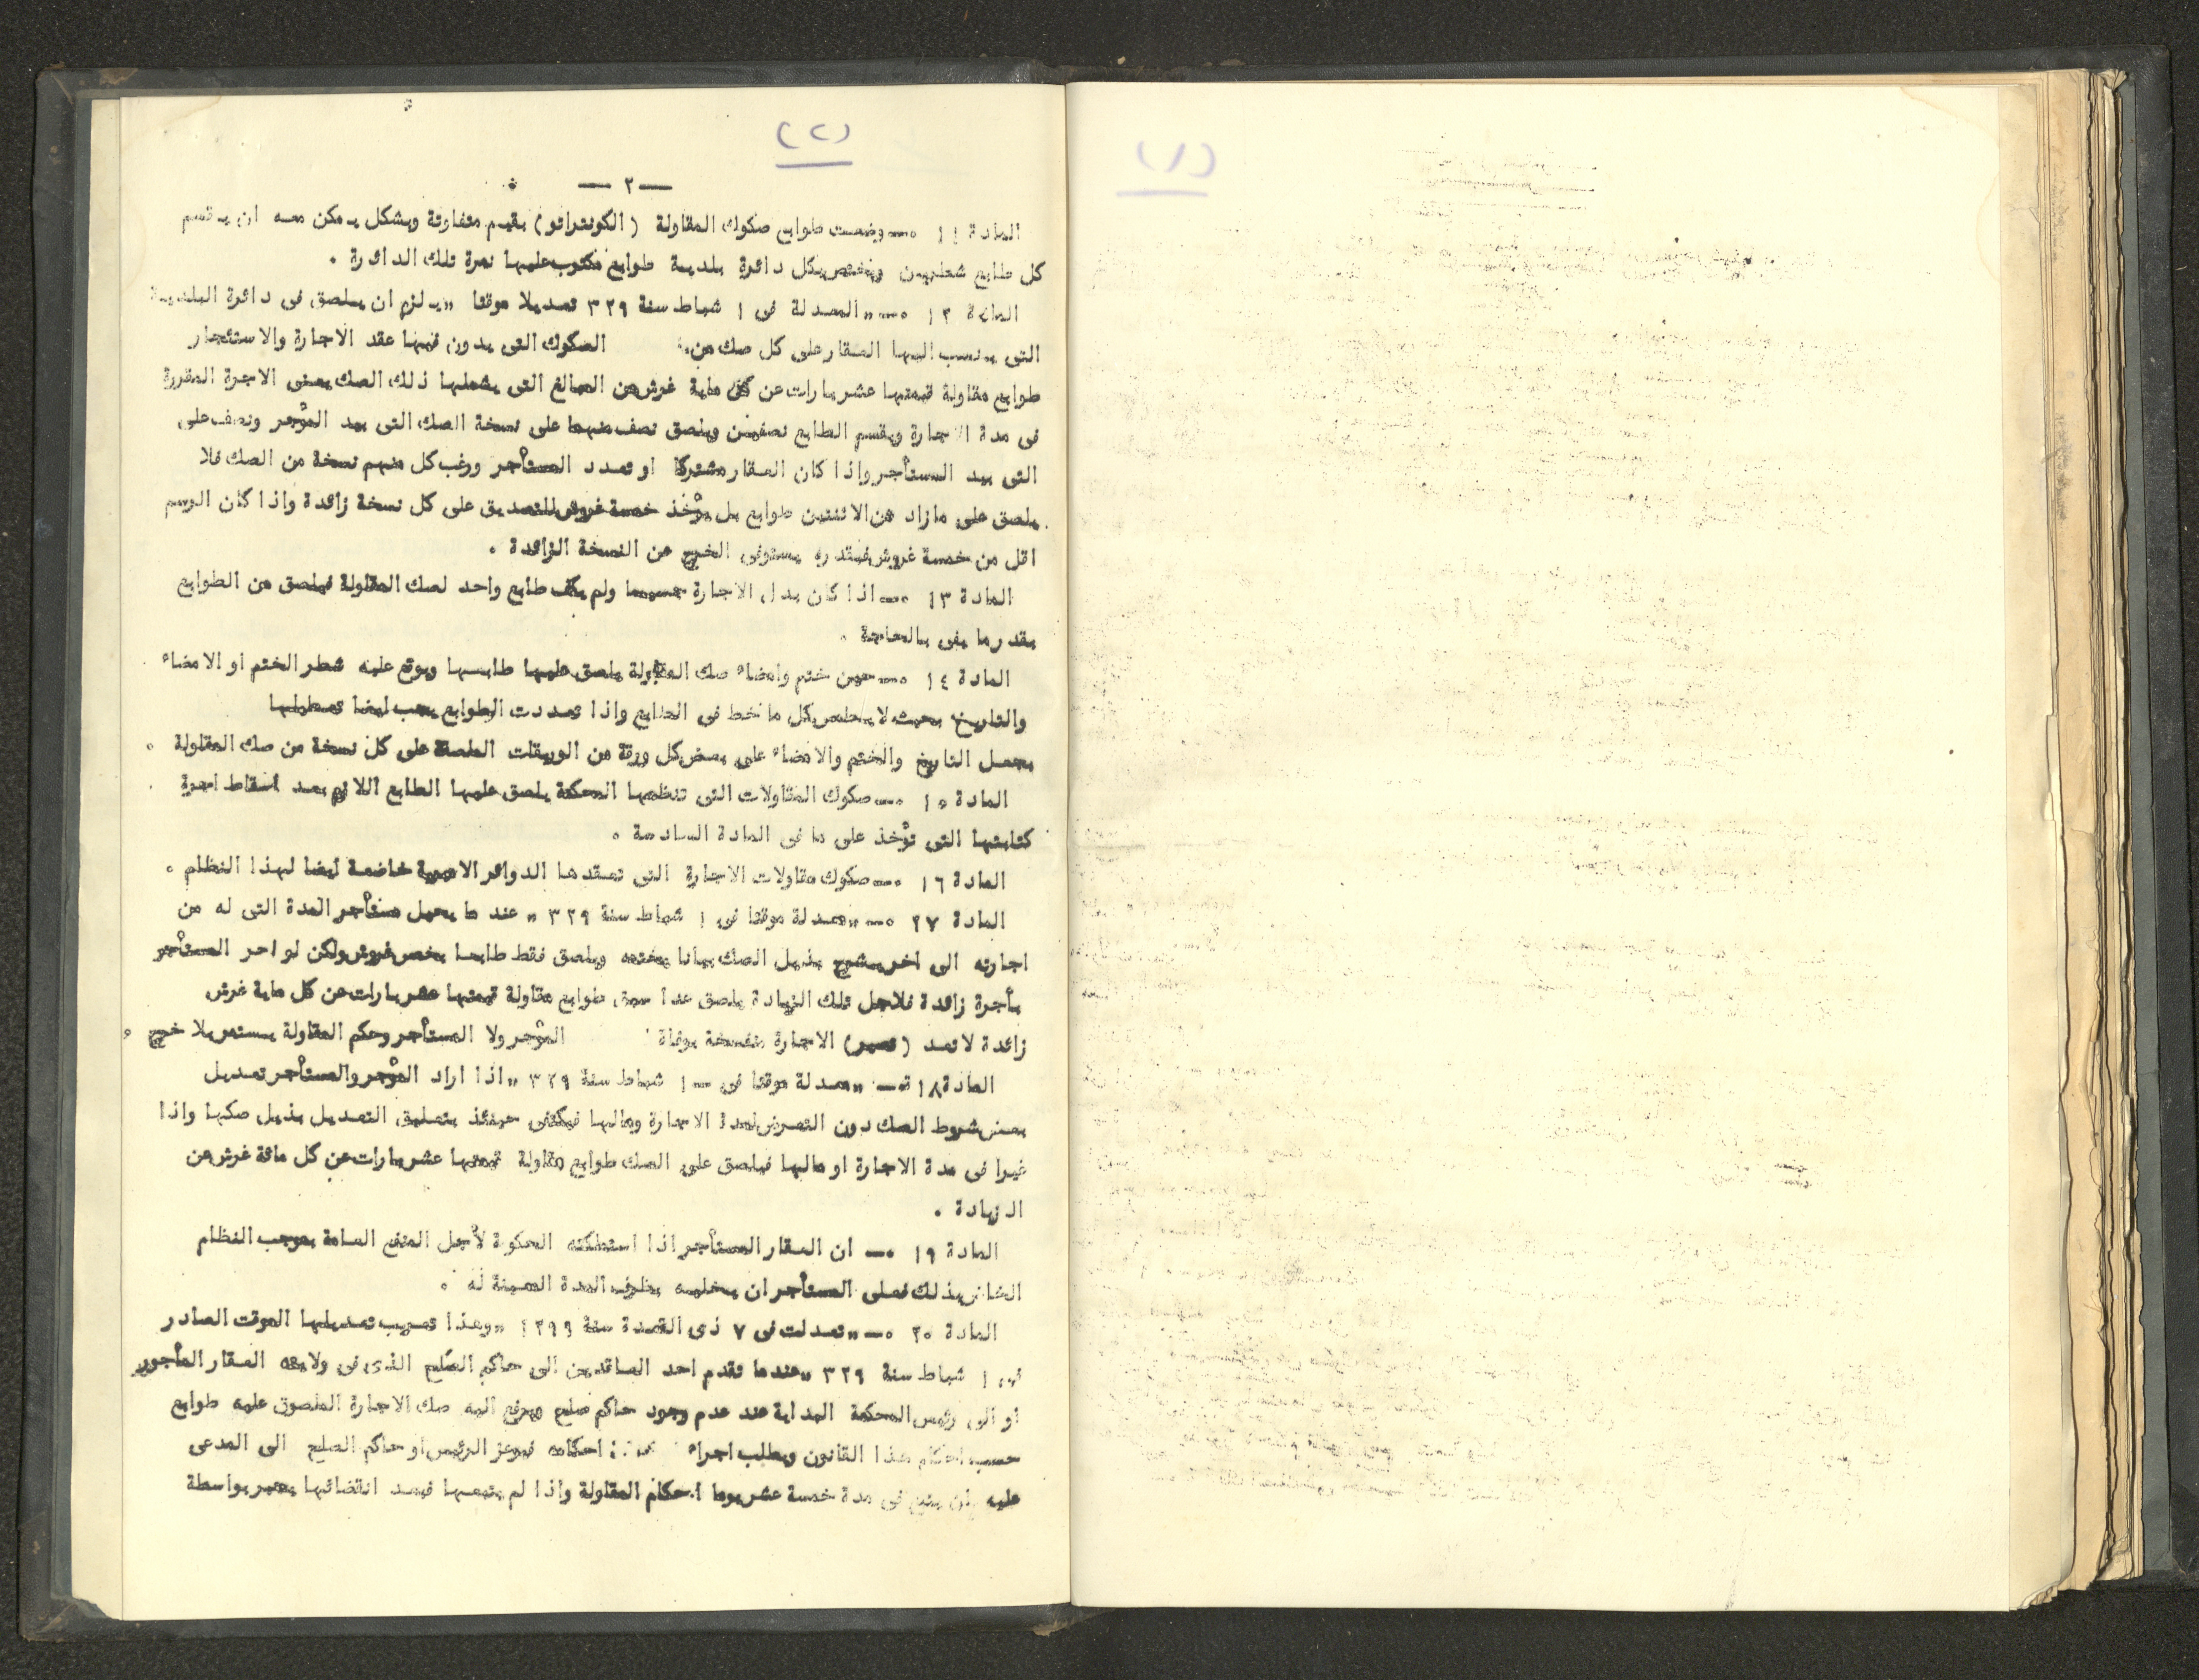 (١)
(٢)
— ٢ —
المادة ١١ ٠— وضعت طوابع صكوك المقاولة ( الكونتراتو ) بقيم متفاوتة وبشكل يمكن معه ان يقسم
كل طابع شطرين ويختص بكل دائرة بلدية طوابع مكتوب عليها نمرة تلك الدائرة ٠
المادة ١٢ ٠— " المعدلة فى ١ شباط سنة ٣٢٩ تعديلا موقتا " يلزم ان يلصق فى دائرة البلدية
التى ينسب اليها العقار على كل صك من الصكوك التى يدون فيها عقد الاجارة والاستئجار
طوابع مقاولة قيمتها عشر بارات عن كل ماية غرش من المبالغ التى يشملها ذلك الصك يعنى الاجرة المقررة
فى مدة الاجارة ويقسم الطابع نصفين ويلصق نصف منهما على نسخة الصك التى بيد المؤجر ونصف على
التى بيد المستأجر واذا كان العقار مشتركا او تعدد المستأجر ورغب كل منهم نسخة من الصك فلا
يلصق على ما زاد من الاثنتين طوابع بل يؤخذ خمسة غروش للتصديق على كل نسخة زائدة واذا كان الرسم
اقل من خمسة غروش فبقدره يستوفى الخرج من النسخة الزائدة ٠
المادة ١٣ ٠— اذا كان بدل الاجارة جسيما ولم يكف طابع واحد لصك المقاولة فيلصق من الطوابع
بقدر ما يفى بالحاجة ٠
المادة ١٤ ٠— حين ختم وامضاء صك المقاولة يلصق عليها طابعها ويوقع عليه شطر الختم او الامضاء
والتاريخ بحيث لا يطمس كل ما خط فى الطابع واذا تعددت الطوابع يجب ايضا تعطيلها
بجعل التاريخ والختم والامضاء على بعض كل ورقة من الوريقات الملصقة على كل نسخة من صك المقاولة ٠
المادة ١٥ ٠— صكوك المقاولات التى تنظمها المحكمة يلصق عليها الطابع اللازم بعد اسقاط اجرة
كتابتها التى تؤخذ على ما فى المادة السادسة ٠
المادة ١٦ ٠— صكوك مقاولات الاجارة التى تعقدها الدوائر الاميرية خاضعة ايضا لهذا النظام ٠
المادة ٢٧ ٠— " معدلة موقتا فى ١ شباط سنة ٣٢٩ " عند ما يحيل مستأجر المدة التى له من
اجارته الى اخر يشرح بذيل الصك بيانا بختمه ويلصق فقط طابعا بخمس غروش ولكن لو اجر المستأجر
بأجرة زائدة فلاجل تلك الزيادة يلصق عدا طوابع مقاولة قيمتها عشر بارات عن كل ماية غرش
زائدة لا تعد ( تصير ) الاجارة منفسخة بوفاة المؤجر ولا المستأجر وحكم المقاولة يستمر بلا خرج ٠
المادة ١٨ ٠— " معدلة موقتا فى — ١ شباط سنة ٣٢٩ " اذا اراد المؤجر والمستأجر تعديل
بعض شروط الصك دون التعرض لمدة الاجارة وبدلها فيكتفى حينئذ بتعليق التعديل بذيل صكها واذا
غيرا فى مدة الاجارة او مالها فيلصق على الصك طوابع مقاولة قيمتها عشر بارات عن كل مائة غرش من
الزيادة ٠
المادة ١٩ ٠— ان العقار المستأجر اذا استملكته الحكومة لأجل المنفع العامة بموجب النظام
الخاص بذلك فعلى المستأجر ان يخليه بظرف المدة المعينة له ٠
المادة ٢٠ ٠— " تعدلت فى ٧ ذى القعدة سنة ١٢٩٩ " وهذا تعريب تعديلها الموقت الصادر
فى ١ شباط سنة ٣٢٩ " عند ما تقدم احد العاقدين الى حاكم الصلح الذى فى ولايته العقار المأجور
او الى رئيس المحكمة البداية عند عدم وجود حاكم صلح ويرفع اليه صك الاجارة الملصوق عليه طوابع
حسب احكام هذا القانون ويطلب اجراء احكامه فيوعز الرئيس او حاكم الصلح الى المدعى
عليه بأن ينفذ فى مدة خمسة عشر يوما احكام المقاولة واذا لم يتبعها فبعد انقضائها يجبر بواسطة